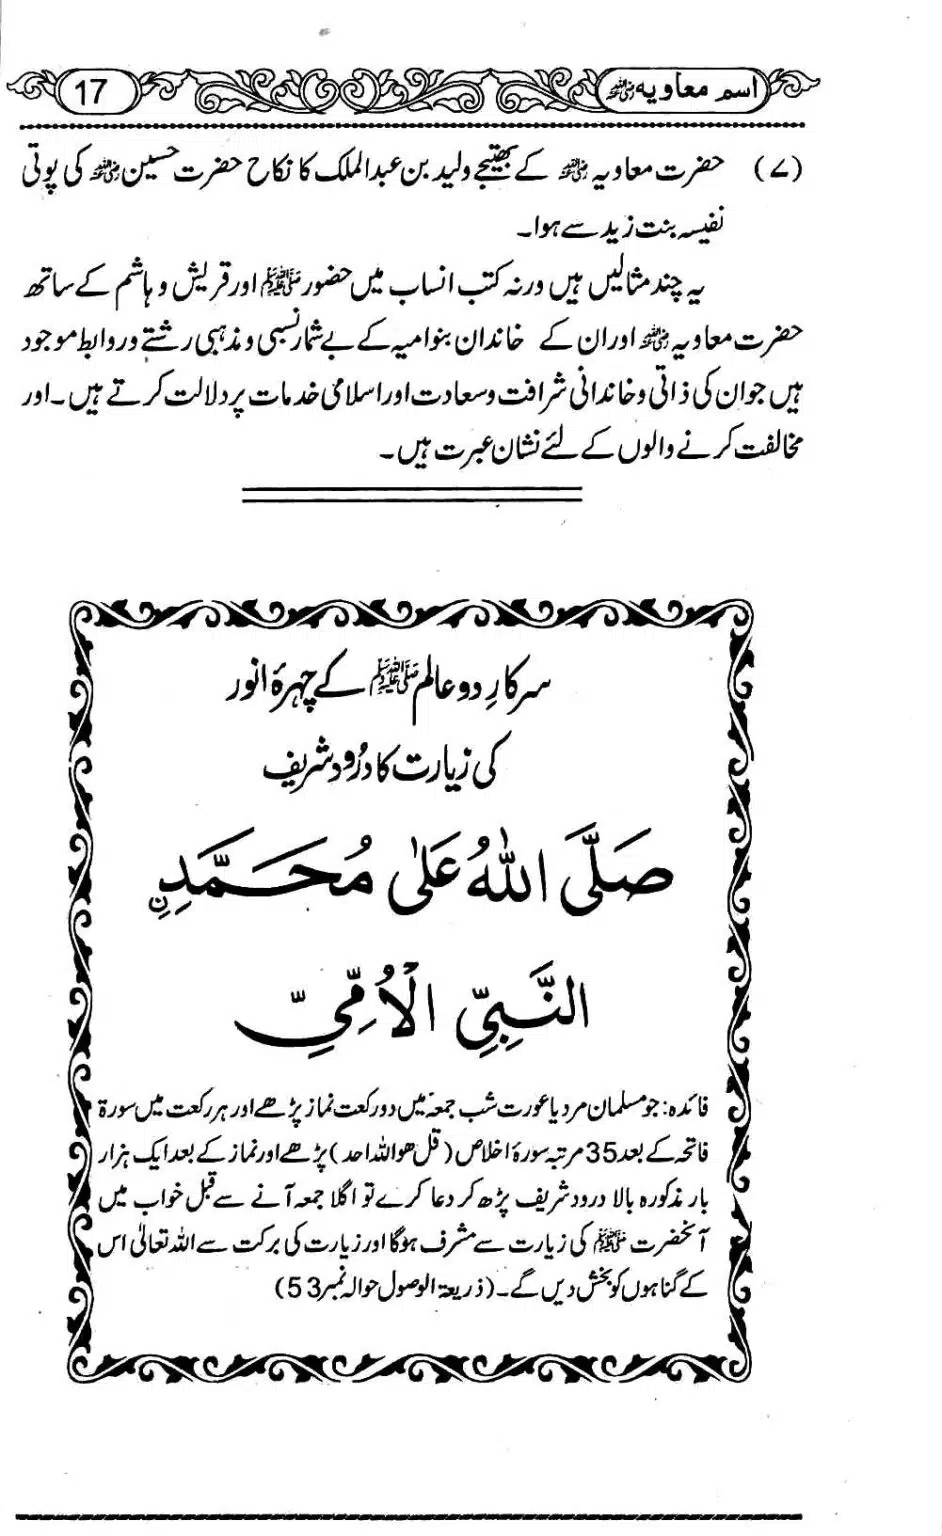 اسم معاویہ ؓ 17
(۷) حضرت معاویہ ؓ کے بھتیجے ولید بن عبدالملک کا نکاح حضرت حسین ؓ کی پوتی
نفیسہ بنت زید سے ہوا۔
یہ چند مثالیں ہیں ورنہ کتب انساب میں حضور ﷺ اور قریش و ہاشم کے ساتھ
حضرت معاویہ ؓ اور ان کے خاندان بنوامیہ کے بے شمار نسبی و مذہبی رشتے و روابط موجود
ہیں جو ان کی ذاتی و خاندانی شرافت و سعادت اور اسلامی خدمات پر دلالت کرتے ہیں۔ اور
مخالفت کرنے والوں کے لئے نشان عبرت ہیں۔
سرکارِ دو عالم ﷺ کے چہرۂ انور
کی زیارت کا درُود شریف
صَلَّی اللہُ عَلٰی مُحَمَّدِنِ
النَّبِیِّ الْاُمِّیِّ
فائدہ: جو مسلمان مرد یا عورت شب جمعہ میں دو رکعت نماز پڑھے اور ہر رکعت میں سورۃ
فاتحہ کے بعد 35 مرتبہ سورۂ اخلاص (قل ھو اللہ احد) پڑھے اور نماز کے بعد ایک ہزار
بار مذکورہ بالا درود شریف پڑھ کر دعا کرے تو اگلا جمعہ آنے سے قبل خواب میں
آنحضرت ﷺ کی زیارت سے مشرف ہوگا اور زیارت کی برکت سے اللہ تعالیٰ اس
کے گناہوں کو بخش دیں گے۔ (ذریعۃ الوصول حوالہ نمبر 53)